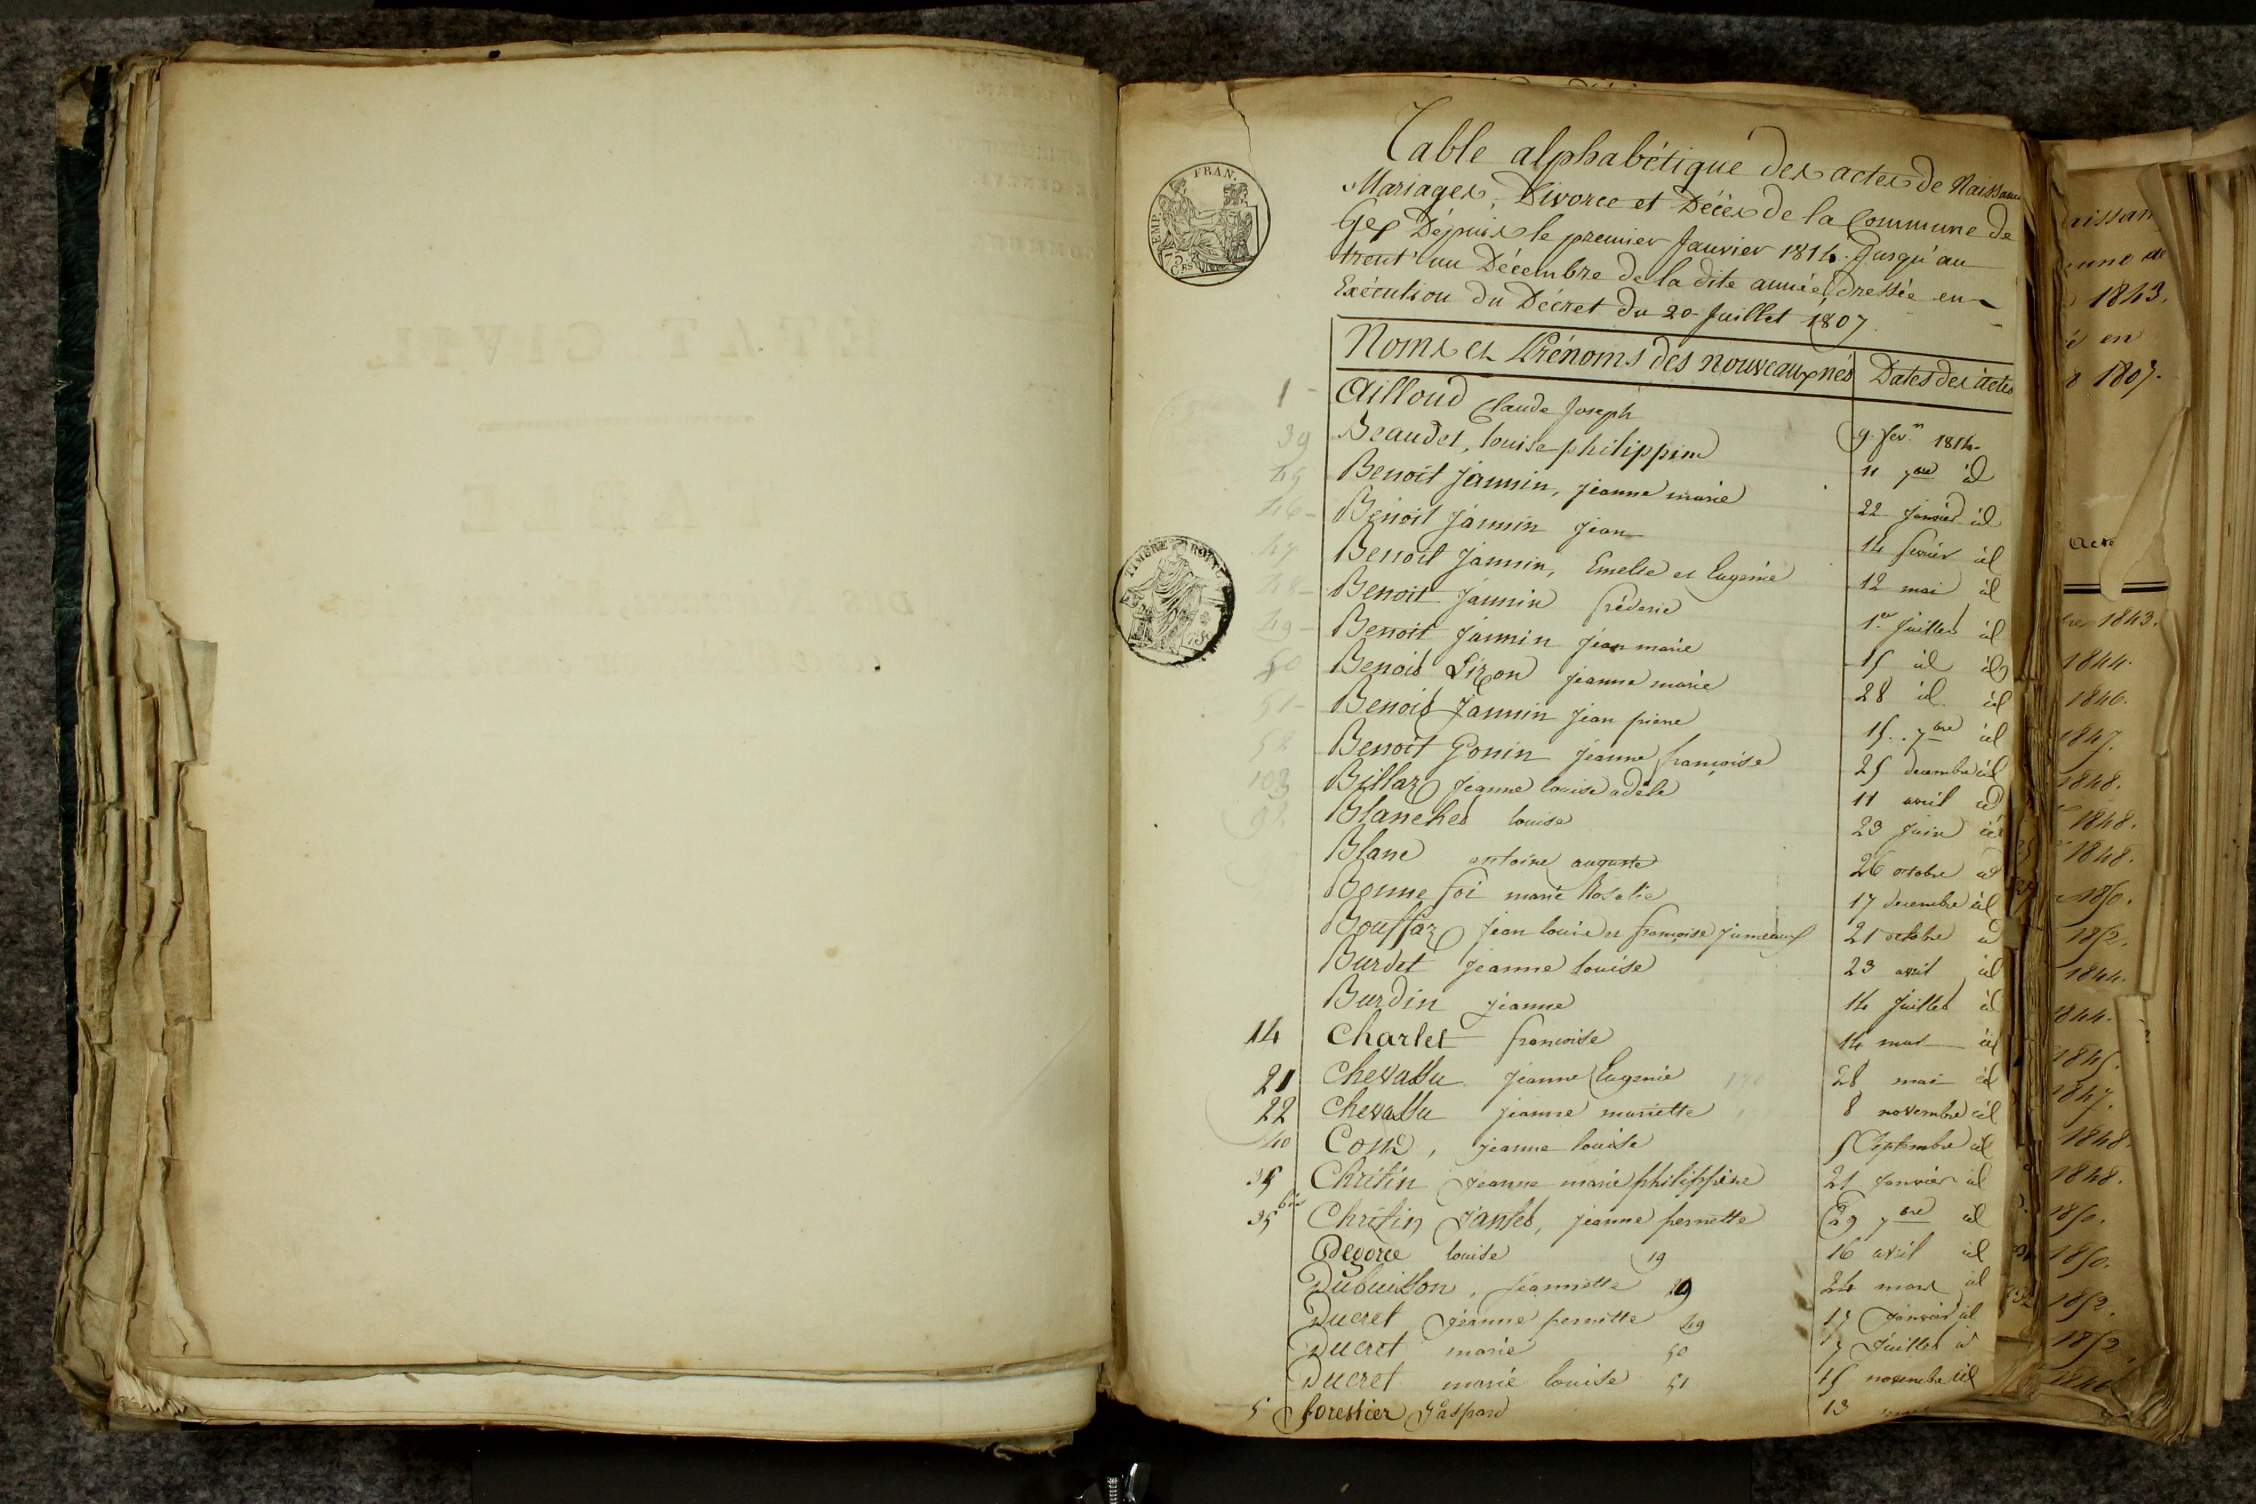 Table alphabétique des actes de Naissance
Mariages, Divorce et Décès de la Commune de
Gex Dépuis le premier Janvier 1814. Jusqu'au
trent'un Décembre de la dite année, dressée en
Exécution du Décret du 20 Juillet 1807
FRAN.
EMP.
75
CES
TIMBRE ROYAL
Noms et Prénoms des nouveaux nés Dates des actes
1 Ailloud Claude Joseph 9. fev.r 1814
39 Beaudet, louise philippine 11 7bre id
45 Benoit Jannin, jeanne marie 22 janvier id
46 Benoit Jannin jean 14 fevrier id
47 Benoit Jannin, Emelie et Eugenie 12 mai id
48 Benoit Jannin fréderic 1er Juillet id
49 Benoit Jannin jean marie 15 id id
50 Benoit Lizon jeanne marie 28 id id
51 Benoit Jannin jean pierre 15. 7bre id
52 Benoit Gonin jeanne françoise 25 decembre id
103 Billaz jeanne louise adèle 11 avril id
Blanchet louise 23 juin id
Blanc antoine auguste 26 octobre id
Bonne foi marie Rosalie 17 decembre id
Bouffaz jean louis et françoise jumeaux 21 octobre id
Burdet jeanne louise 23 avril id
Burdin jeanne 14 juillet id
14 Charlet francoise 14 mars id
21 Chevassu jeanne Eugenie 28 mai id
22 Chevassu jeanne mariette 8 novembre id
40 jeanne louise 5 Septembre id
35 Chritin jeanne marie philippine 21 janvier id
35 bis Chritin jeanne pernette 29 7bre id
Degorce louise 19 16 avril id
Dubuisson, jeannette 19 24 mars id
Ducret jeanne pernette 49 15 janvier id
Ducret marie 50 Juillet id
Ducret marie louise 51 15 novembre id
5 forestier Gaspard 13
1843.
en
1807.
1843.
1844.
1846.
1847.
1848.
1848.
1848.
1850.
1852.
1844.
1844.
1845.
1847.
1848.
1848.
1850.
1850.
1852.
1852